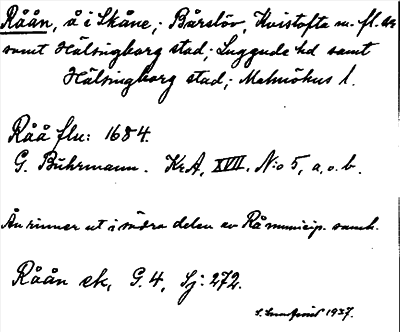 Råån, å i Skåne; Bårslöv, Kvistofta m. fl. sn
samt Hälsingborg stad; Luggude hd samt
Hälsingborg stad; Malmöhus l.
Råå flu: 1684.
G. Buhrmann. KrA, XVII. N:o 5, a, o. b.
Ån rinner ut i södra delen av Rå municip. samh.
Råån ek, G. 4, Sj: 272.
1937.